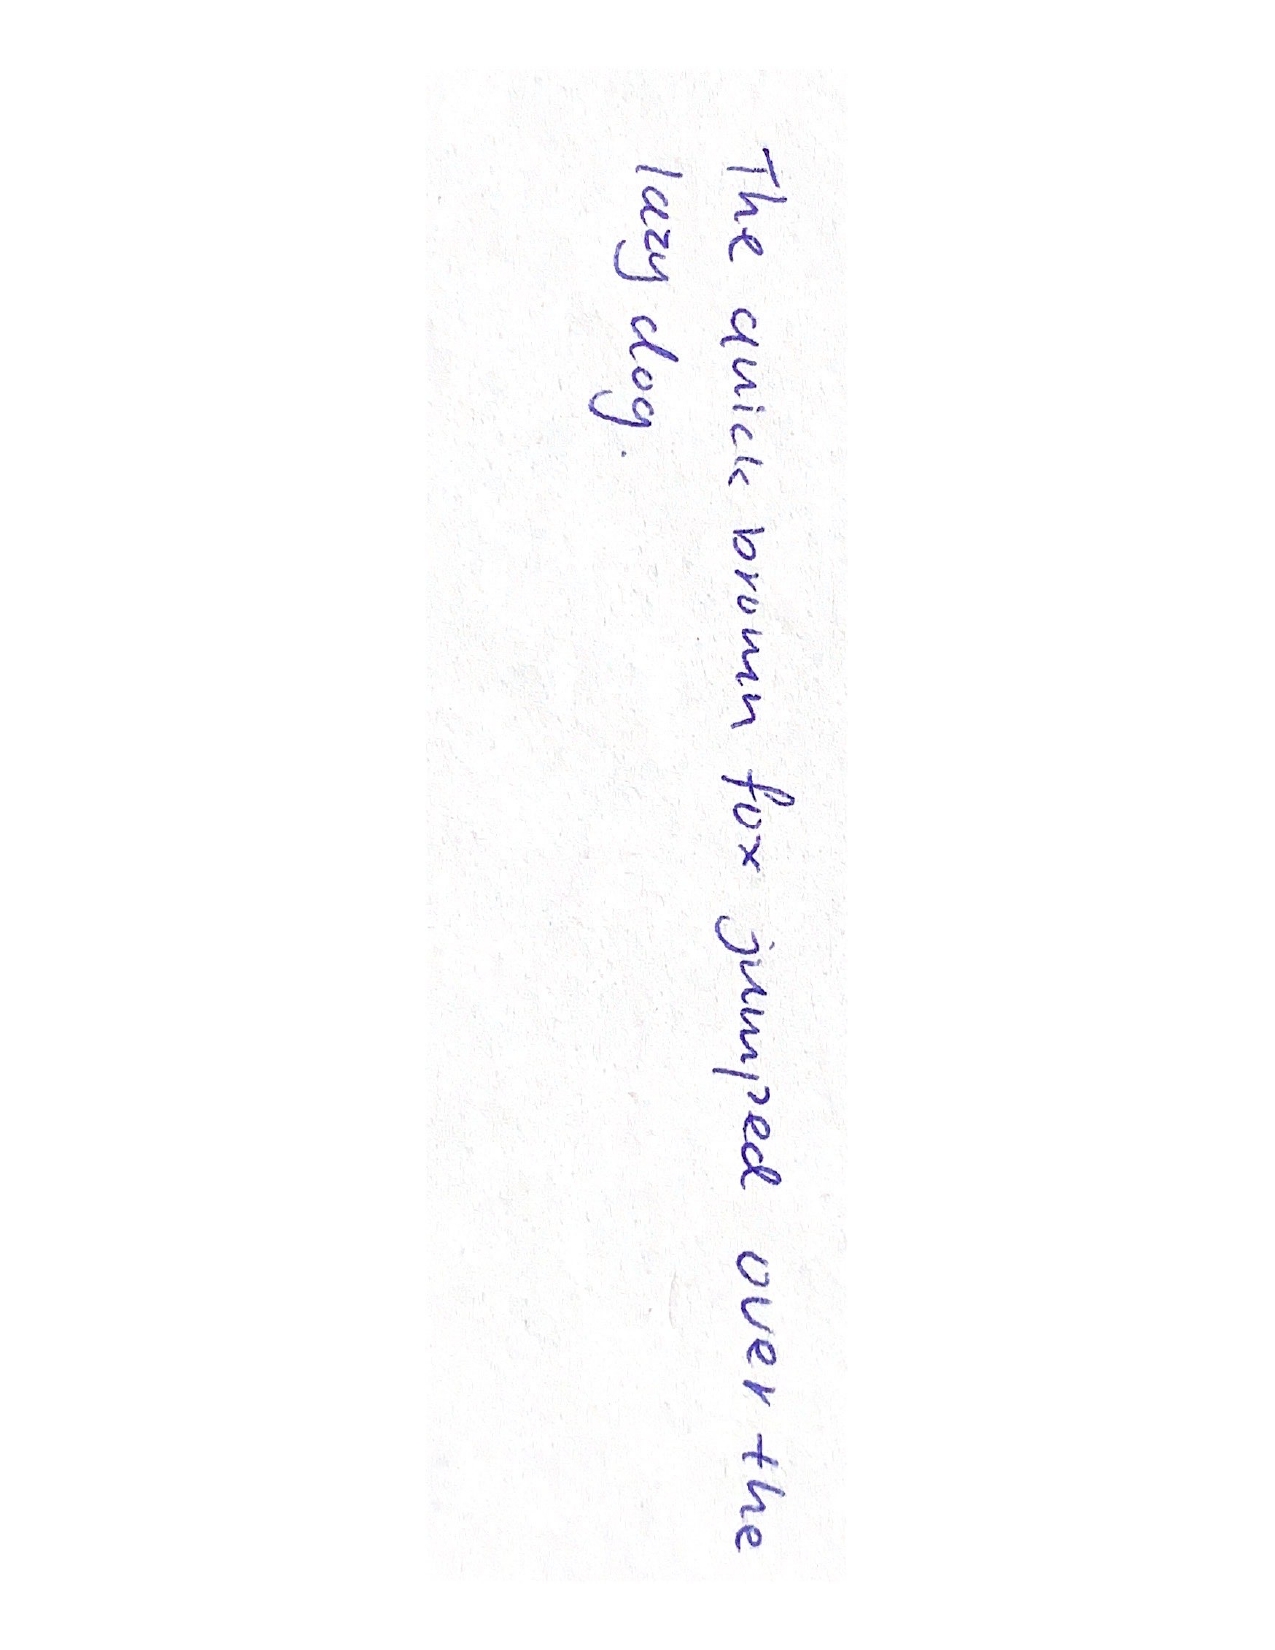 The quick brown fox jumped over the
lazy dog.